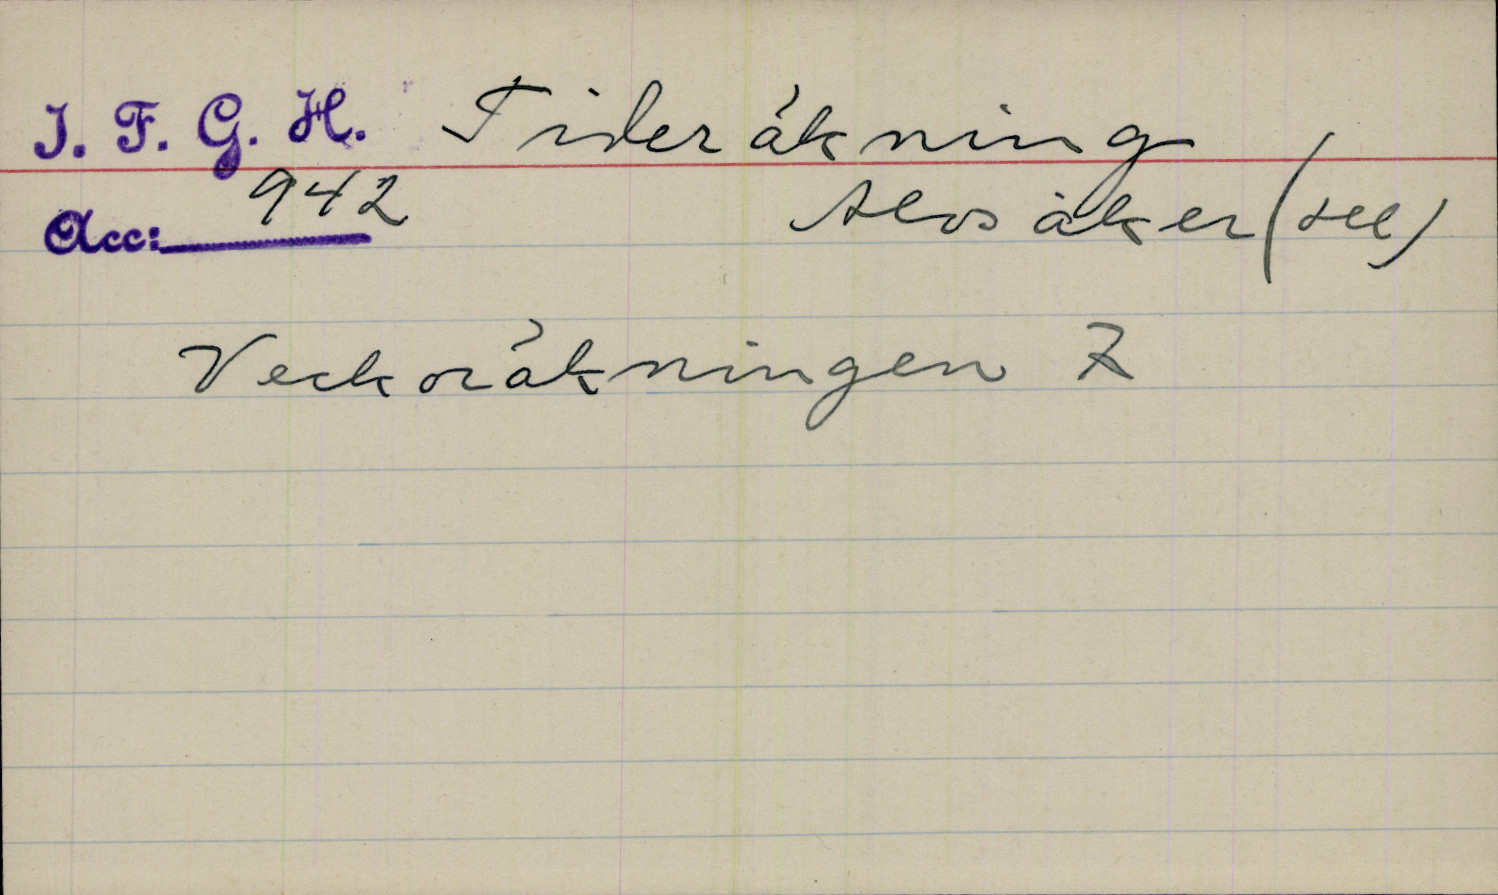 I. F. G. H. Tideräkning
Acc: 942 Alvsåker (Hll)
Veckoräkningen 7